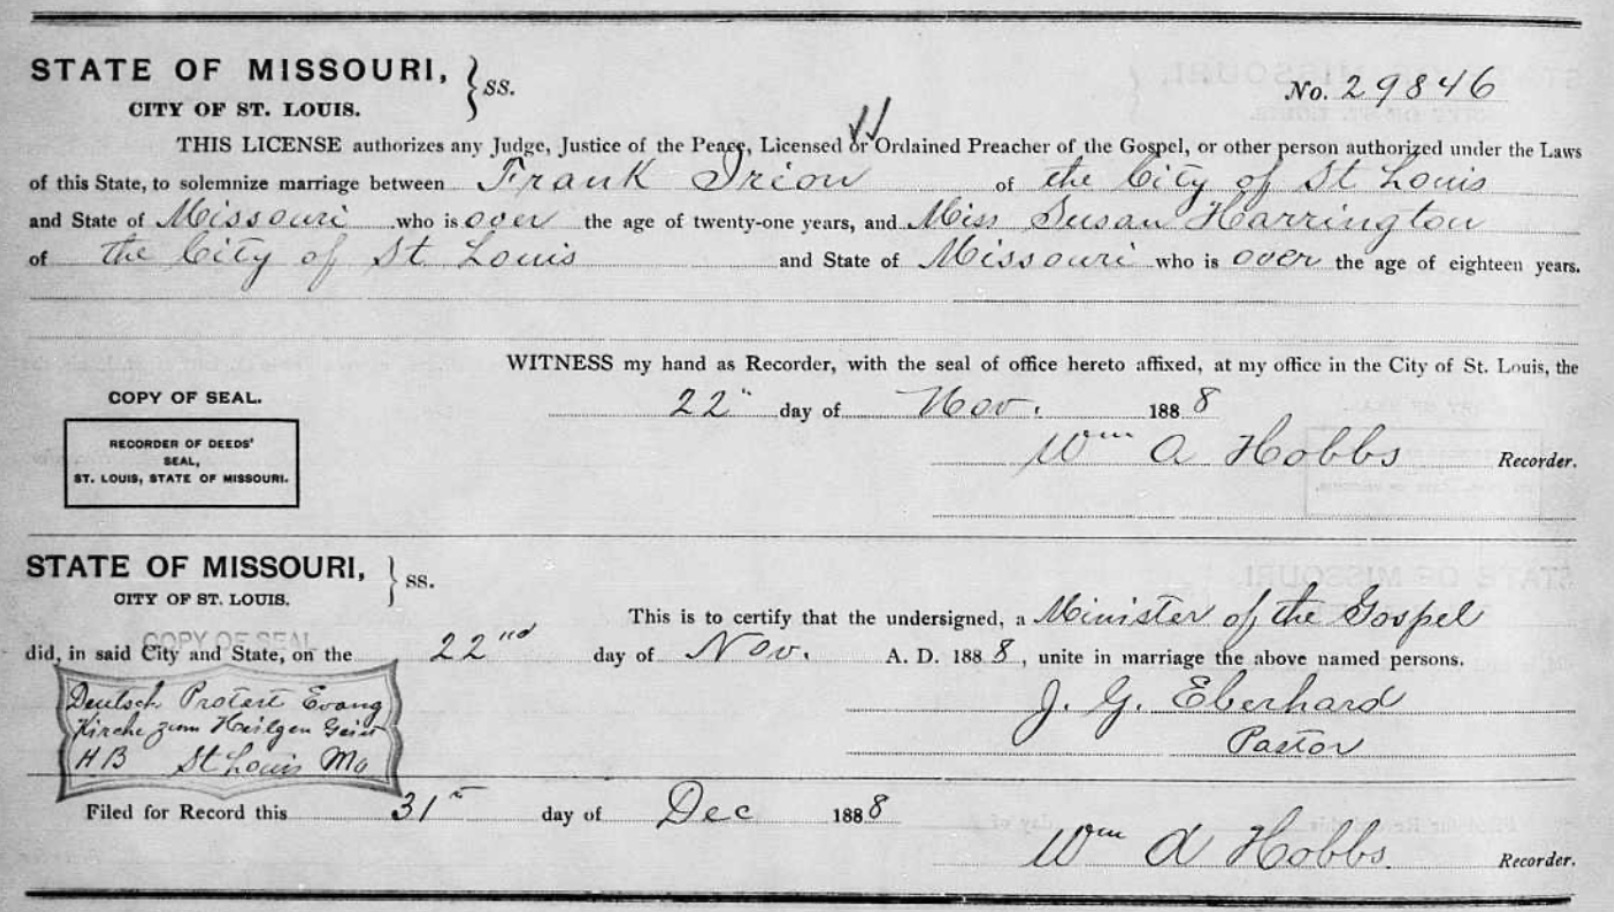 STATE OF MISSOURI, } ss.
CITY OF ST. LOUIS.
No. 29846
THIS LICENSE authorizes any Judge, Justice of the Peace, Licensed or Ordained Preacher of the Gospel, or other person authorized under the Laws
of this State, to solemnize marriage between Frank Irion of the City of St Louis
and State of Missouri who is over the age of twenty-one years, and Miss Susan Harrington
of the City of St Louis and State of Missouri who is over the age of eighteen years.
WITNESS my hand as Recorder, with the seal of office hereto affixed, at my office in the City of St. Louis, the
22" day of Nov. 1888
Wm A Hobbs Recorder.
COPY OF SEAL.
RECORDER OF DEEDS'
SEAL,
ST. LOUIS, STATE OF MISSOURI.
STATE OF MISSOURI, } ss.
CITY OF ST. LOUIS.
This is to certify that the undersigned, a Minister of the Gospel
did, in said City and State, on the 22nd day of Nov. A. D. 1888, unite in marriage the above named persons.
COPY OF SEAL
Deutsch Protest Evang
Kirche zum Heilgen Geist
H B St Louis Mo
J. G. Eberhard
Pastor
Filed for Record this 31st day of Dec 1888
Wm A Hobbs. Recorder.